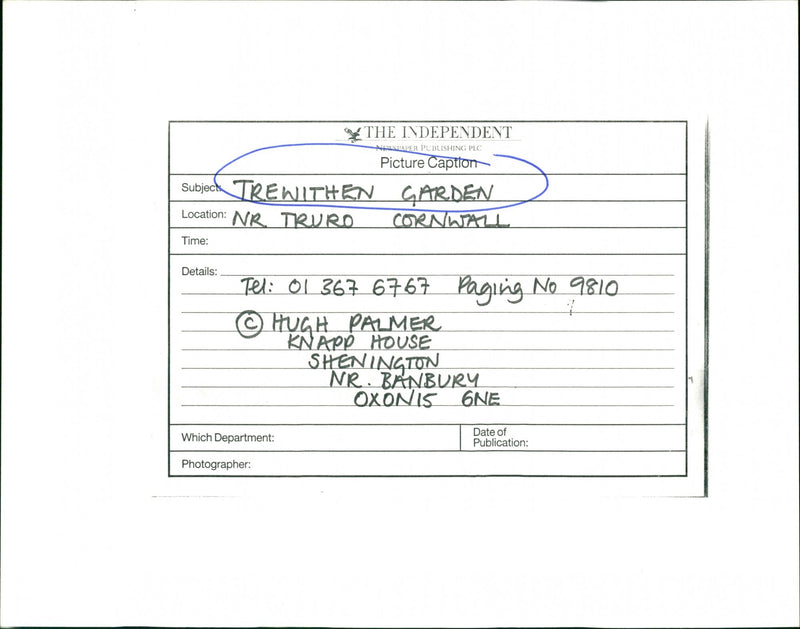 THE INDEPENDENT
NEWSPAPER PUBLISHING PLC
Picture Caption
Subject: TREWITHEN GARDEN
Location: NR TRURO CORNWALL
Time:
Details:
Tel: 01 367 6767 Paging No 9810
© HUGH PALMER
KNAPP HOUSE
SHENINGTON
NR. BANBURY
OXON15 6NE
Which Department:
Date of
Publication:
Photographer: